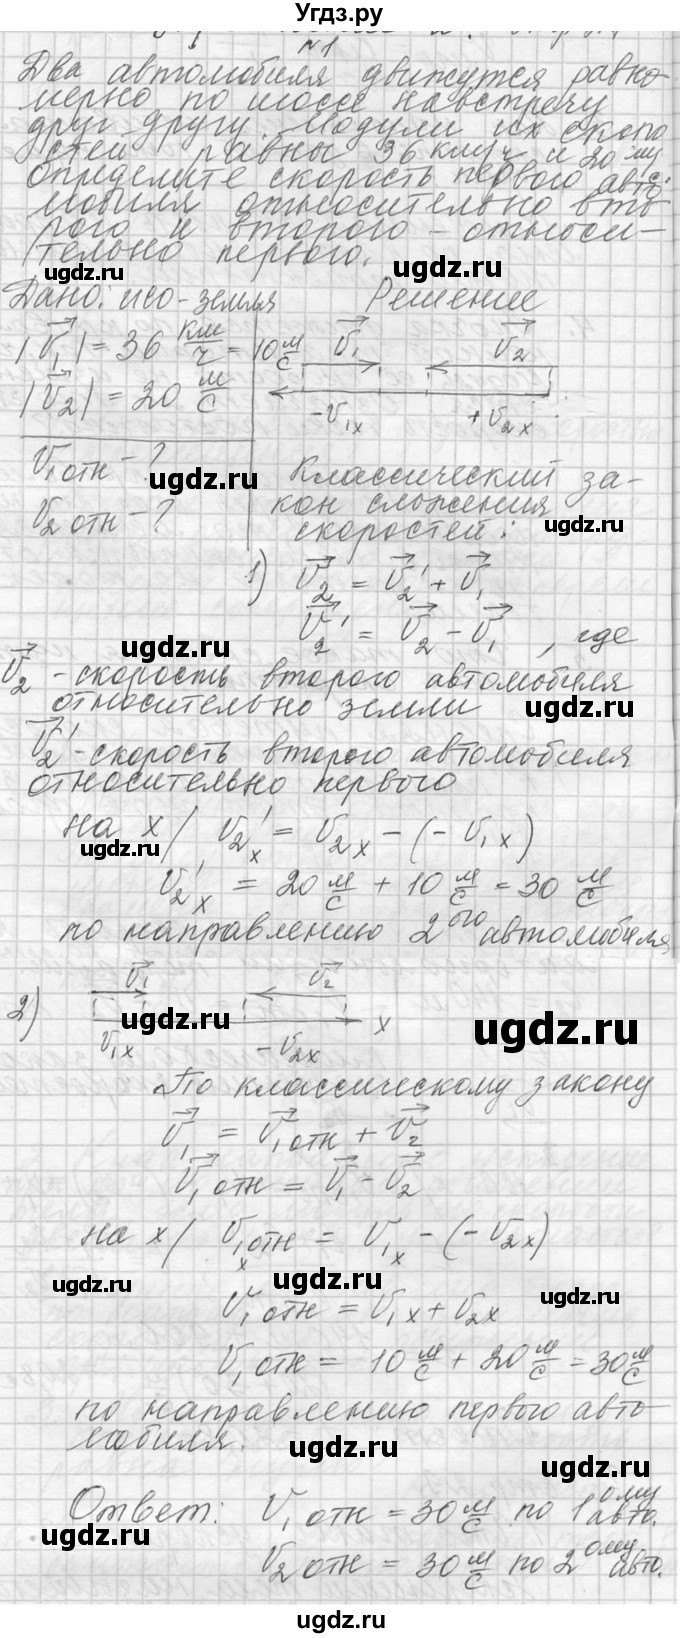 Угдз.ру
№1
Два автомобиля движутся равно-
мерно по шоссе навстречу
друг другу. Модули их скоро
стей равны 36 км/ч и 20 м/с.
определите скорость первого авто
мобиля относительно вто
рого и второго - относи-
тельно первого.
ugdz.ru ugdz.ru
Дано: исо-земля Решение
|v₁| = 36 км/ч = 10 м/с v₁ v₂
|v₂| = 20 м/с
-v₁ₓ +v₂ₓ
v₁ отн - ? ugdz.ru Классический за-
v₂ отн - ? кон сложения ugdz.ru
скоростей:
1) v₂ = v₂' + v₁
ugdz.ru v₂' = v₂ - v₁, где
v₂ - скорость второго автомобиля
относительно земли ugdz.ru
v₂' - скорость второго автомобиля
относительно первого
на x/ v₂'ₓ = v₂ₓ - (-v₁ₓ)
ugdz.ru
v₂'ₓ = 20 м/с + 10 м/с = 30 м/с
по направлению 2ого автомобиля
2) v₁ v₂
x ugdz.ru
v₁ₓ -v₂ₓ
По классическому закону
v₁ = v₁ отн + v₂
v₁ отн = v₁ - v₂
на x/ v₁ₓ отн = v₁ₓ - (-v₂ₓ)
ugdz.ru ugdz.ru ugdz.ru
v₁ отн = v₁ₓ + v₂ₓ
v₁ отн = 10 м/с + 20 м/с = 30 м/с
по направлению первого авто-
мобиля. ugdz.ru ugdz.ru
Ответ: v₁ отн = 30 м/с по 1ому авто.
ugdz.ru
v₂ отн = 30 м/с по 2ому авто.
ugdz.ru